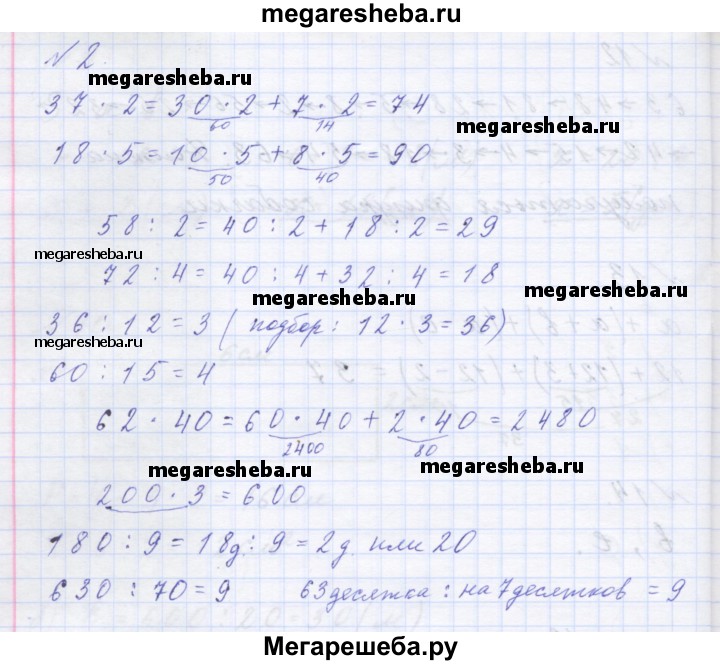 megaresheba.ru
№ 2.
megaresheba.ru
37 · 2 = 30 · 2 + 7 · 2 = 74
60 14
megaresheba.ru
18 · 5 = 10 · 5 + 8 · 5 = 90
50 40
58 : 2 = 40 : 2 + 18 : 2 = 29
megaresheba.ru
72 : 4 = 40 : 4 + 32 : 4 = 18
megaresheba.ru
megaresheba.ru
36 : 12 = 3 ( подбор: 12 · 3 = 36)
megaresheba.ru
60 : 15 = 4
62 · 40 = 60 · 40 + 2 · 40 = 2480
2400 80
megaresheba.ru
megaresheba.ru
200 · 3 = 600
180 : 9 = 18д : 9 = 2д. или 20
630 : 70 = 9 63 десятка : на 7 десятков = 9
Мегарешеба.ру